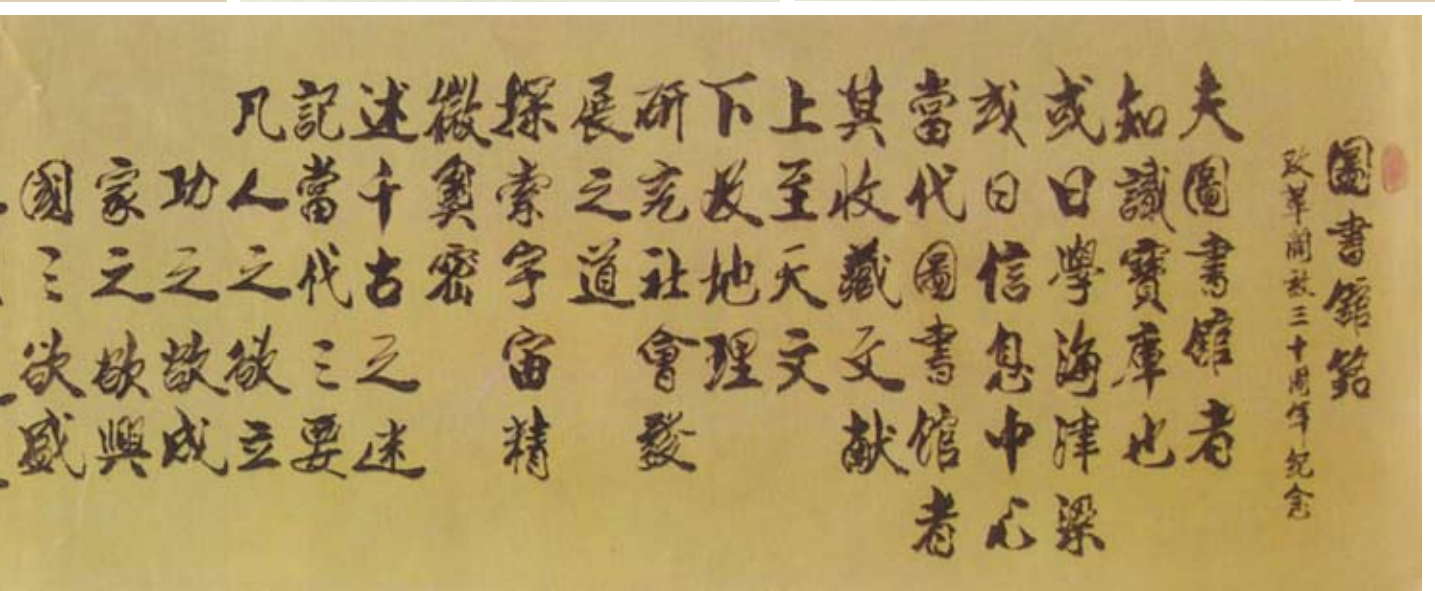 圖書館銘
改革開放三十周年纪念
夫圖書館者
知識寶庫也
或曰學海津梁
或曰信息中心
當代圖書馆者
其收藏文献
上至天文
下及地理
研究社會發
展之道
探索宇宙精
微奥密
述千古之迷
記當代之要
凡人之欲立
功之欲成
家之欲興
國之欲盛